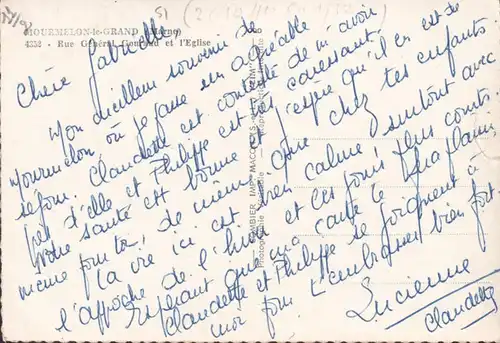 MOURMELON-le-GRAND (Marne)
4352 - Rue Général Gouraud et l'Eglise
Chère Gabrielle
Mon meilleur souvenir de
Mourmelon où je passe un agréable
séjour. Claudette est contente de m'avoir
près d'elle et Philippe est très caressant.
Notre santé est bonne et j'espère qu'il en est de
même pour toi, de même que chez tes enfants
La vie ici est bien calme surtout avec
l'approche de l'hiver et ces jours plus courts.
Espérant que ma carte te fera plaisir,
Claudette et Philippe se joignent à
moi pour t'embrasser bien fort
Lucienne
Claudette